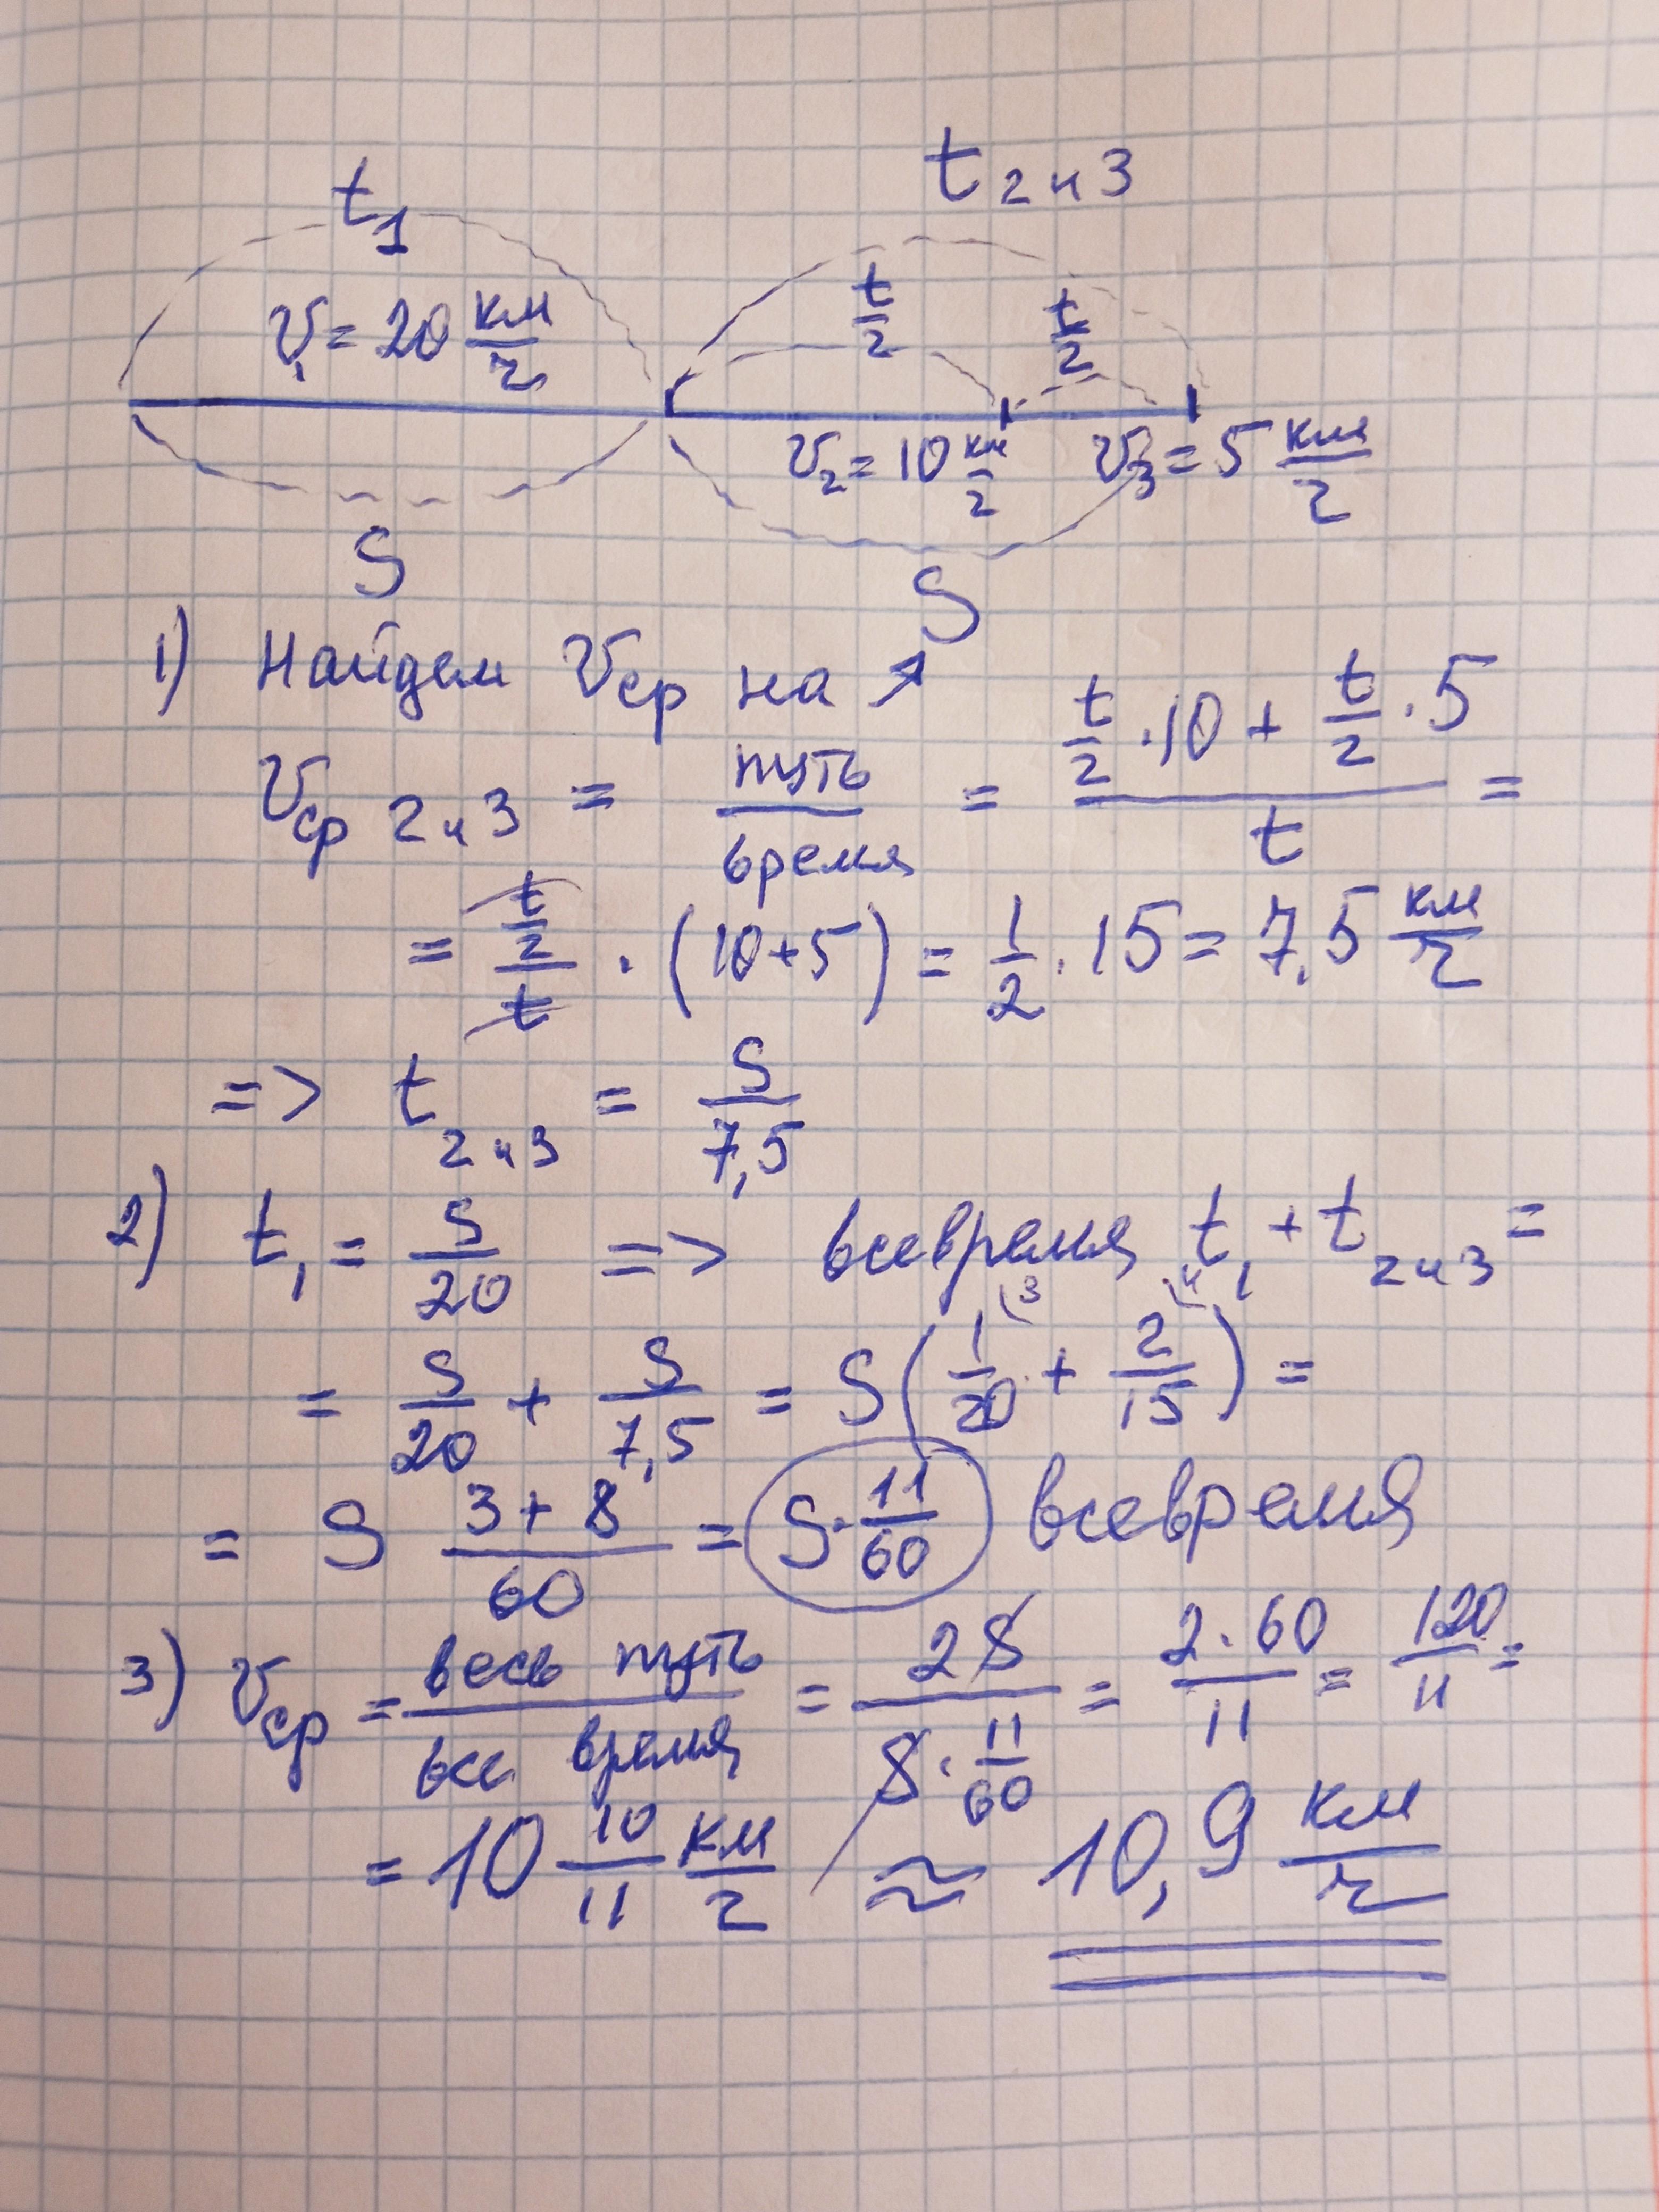 t₁ t₂ и ₃
v₁ = 20 км/г t/2 t/2
v₂ = 10 км/г v₃ = 5 км/г
S S
1) Найдем vср на ↗
vср 2 и 3 = путь/время = (t/2 · 10 + t/2 · 5)/t =
= (t/2)/t · (10+5) = 1/2 · 15 = 7,5 км/г
=> t₂ и ₃ = S/7,5
2) t₁ = S/20 => все время t₁ + t₂ и ₃ =
= S/20 + S/7,5 = S(1/20 (3 + 2/15 (4) =
= S (3+8)/60 = S · 11/60 все время
3) vср = весь путь/все время = 2S/(S · 11/60) = 2·60/11 = 120/11 =
= 10 10/11 км/г ≈ 10,9 км/г